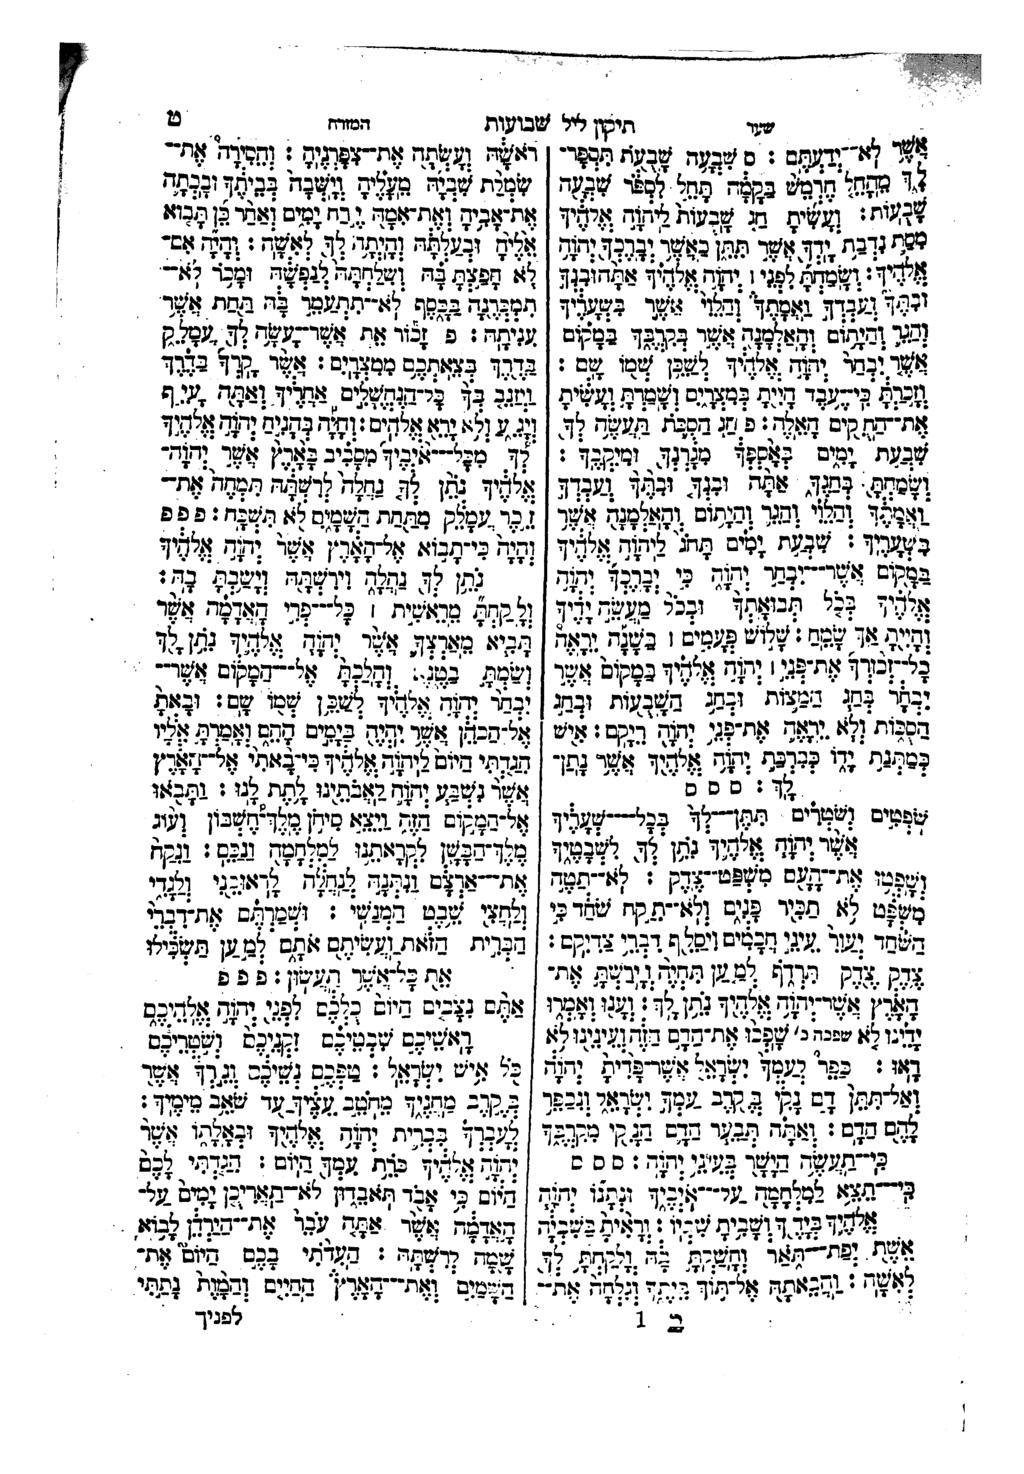 שער תיקון ליל שבועות המזרח ט
אֲשֶׁר לֹא־יְדַעְתֶּם : ס שִׁבְעָה שָׁבֻעֹת תִּסְפָּר־
לָךְ מֵהָחֵל חֶרְמֵשׁ בַּקָּמָה תָּחֵל לִסְפֹּר שִׁבְעָה
שָׁבֻעוֹת : וְעָשִׂיתָ חַג שָׁבֻעוֹת לַיהֹוָה אֱלֹהֶיךָ
מִסַּת נִדְבַת יָדְךָ אֲשֶׁר תִּתֵּן כַּאֲשֶׁר יְבָרֶכְךָ יְהֹוָה
אֱלֹהֶיךָ : וְשָׂמַחְתָּ לִפְנֵי ׀ יְהֹוָה אֱלֹהֶיךָ אַתָּה וּבִנְךָ
וּבִתֶּךָ וְעַבְדְּךָ וַאֲמָתֶךָ וְהַלֵּוִי אֲשֶׁר בִּשְׁעָרֶיךָ
וְהַגֵּר וְהַיָּתוֹם וְהָאַלְמָנָה אֲשֶׁר בְּקִרְבֶּךָ בַּמָּקוֹם
אֲשֶׁר יִבְחַר יְהֹוָה אֱלֹהֶיךָ לְשַׁכֵּן שְׁמוֹ שָׁם :
וְזָכַרְתָּ כִּי־עֶבֶד הָיִיתָ בְּמִצְרָיִם וְשָׁמַרְתָּ וְעָשִׂיתָ
אֶת־הַחֻקִּים הָאֵלֶּה : פ חַג הַסֻּכֹּת תַּעֲשֶׂה לְךָ
שִׁבְעַת יָמִים בְּאָסְפְּךָ מִגָּרְנְךָ וּמִיִּקְבֶךָ :
וְשָׂמַחְתָּ בְּחַגֶּךָ אַתָּה וּבִנְךָ וּבִתֶּךָ וְעַבְדְּךָ
וַאֲמָתֶךָ וְהַלֵּוִי וְהַגֵּר וְהַיָּתוֹם וְהָאַלְמָנָה אֲשֶׁר
בִּשְׁעָרֶיךָ : שִׁבְעַת יָמִים תָּחֹג לַיהֹוָה אֱלֹהֶיךָ
בַּמָּקוֹם אֲשֶׁר־יִבְחַר יְהֹוָה כִּי יְבָרֶכְךָ יְהֹוָה
אֱלֹהֶיךָ בְּכֹל תְּבוּאָתְךָ וּבְכֹל מַעֲשֵׂה יָדֶיךָ
וְהָיִיתָ אַךְ שָׂמֵחַ : שָׁלוֹשׁ פְּעָמִים ׀ בַּשָּׁנָה יֵרָאֶה
כָל־זְכוּרְךָ אֶת־פְּנֵי ׀ יְהֹוָה אֱלֹהֶיךָ בַּמָּקוֹם אֲשֶׁר
יִבְחָר בְּחַג הַמַּצּוֹת וּבְחַג הַשָּׁבֻעוֹת וּבְחַג
הַסֻּכּוֹת וְלֹא יֵרָאֶה אֶת־פְּנֵי יְהֹוָה רֵיקָם : אִישׁ
כְּמַתְּנַת יָדוֹ כְּבִרְכַּת יְהֹוָה אֱלֹהֶיךָ אֲשֶׁר נָתַן־
לָךְ : ס ס ס
שֹׁפְטִים וְשֹׁטְרִים תִּתֶּן־לְךָ בְּכָל־שְׁעָרֶיךָ
אֲשֶׁר יְהֹוָה אֱלֹהֶיךָ נֹתֵן לְךָ לִשְׁבָטֶיךָ
וְשָׁפְטוּ אֶת־הָעָם מִשְׁפַּט־צֶדֶק : לֹא־תַטֶּה
מִשְׁפָּט לֹא תַכִּיר פָּנִים וְלֹא־תִקַּח שֹׁחַד כִּי
הַשֹּׁחַד יְעַוֵּר עֵינֵי חֲכָמִים וִיסַלֵּף דִּבְרֵי צַדִּיקִם :
צֶדֶק צֶדֶק תִּרְדֹּף לְמַעַן תִּחְיֶה וְיָרַשְׁתָּ אֶת־
הָאָרֶץ אֲשֶׁר־יְהֹוָה אֱלֹהֶיךָ נֹתֵן לָךְ : וְעָנוּ וְאָמְרוּ
יָדֵינוּ לֹא שפכה כ' שָׁפְכוּ אֶת־הַדָּם הַזֶּה וְעֵינֵינוּ לֹא
רָאוּ : כַּפֵּר לְעַמְּךָ יִשְׂרָאֵל אֲשֶׁר־פָּדִיתָ יְהֹוָה
וְאַל־תִּתֵּן דָּם נָקִי בְּקֶרֶב עַמְּךָ יִשְׂרָאֵל וְנִכַּפֵּר
לָהֶם הַדָּם : וְאַתָּה תְּבַעֵר הַדָּם הַנָּקִי מִקִּרְבֶּךָ
כִּי־תַעֲשֶׂה הַיָּשָׁר בְּעֵינֵי יְהֹוָה : ס ס ס
כִּי־תֵצֵא לַמִּלְחָמָה עַל־אֹיְבֶיךָ וּנְתָנוֹ יְהֹוָה
אֱלֹהֶיךָ בְּיָדֶךָ וְשָׁבִיתָ שִׁבְיוֹ : וְרָאִיתָ בַּשִּׁבְיָה
אֵשֶׁת יְפַת־תֹּאַר וְחָשַׁקְתָּ בָהּ וְלָקַחְתָּ לְךָ
לְאִשָּׁה : וַהֲבֵאתָהּ אֶל־תּוֹךְ בֵּיתֶךָ וְגִלְּחָה אֶת־
רֹאשָׁהּ וְעָשְׂתָה אֶת־צִפָּרְנֶיהָ : וְהֵסִירָה אֶת־
שִׂמְלַת שִׁבְיָהּ מֵעָלֶיהָ וְיָשְׁבָה בְּבֵיתֶךָ וּבָכְתָה
אֶת־אָבִיהָ וְאֶת־אִמָּהּ יֶרַח יָמִים וְאַחַר כֵּן תָּבוֹא
אֵלֶיהָ וּבְעַלְתָּהּ וְהָיְתָה לְךָ לְאִשָּׁה : וְהָיָה אִם־
לֹא חָפַצְתָּ בָּהּ וְשִׁלַּחְתָּהּ לְנַפְשָׁהּ וּמָכֹר לֹא־
תִמְכְּרֶנָּה בַּכָּסֶף לֹא־תִתְעַמֵּר בָּהּ תַּחַת אֲשֶׁר
עִנִּיתָהּ : פ זָכוֹר אֵת אֲשֶׁר־עָשָׂה לְךָ עֲמָלֵק
בַּדֶּרֶךְ בְּצֵאתְכֶם מִמִּצְרָיִם : אֲשֶׁר קָרְךָ בַּדֶּרֶךְ
וַיְזַנֵּב בְּךָ כָּל־הַנֶּחֱשָׁלִים אַחֲרֶיךָ וְאַתָּה עָיֵף
וְיָגֵעַ וְלֹא יָרֵא אֱלֹהִים : וְהָיָה בְּהָנִיחַ יְהֹוָה אֱלֹהֶיךָ
לְךָ מִכָּל־אֹיְבֶיךָ מִסָּבִיב בָּאָרֶץ אֲשֶׁר יְהֹוָה־
אֱלֹהֶיךָ נֹתֵן לְךָ נַחֲלָה לְרִשְׁתָּהּ תִּמְחֶה אֶת־
זֵכֶר עֲמָלֵק מִתַּחַת הַשָּׁמָיִם לֹא תִּשְׁכָּח : פ פ פ
וְהָיָה כִּי־תָבוֹא אֶל־הָאָרֶץ אֲשֶׁר יְהֹוָה אֱלֹהֶיךָ
נֹתֵן לְךָ נַחֲלָה וִירִשְׁתָּהּ וְיָשַׁבְתָּ בָּהּ :
וְלָקַחְתָּ מֵרֵאשִׁית ׀ כָּל־פְּרִי הָאֲדָמָה אֲשֶׁר
תָּבִיא מֵאַרְצְךָ אֲשֶׁר יְהֹוָה אֱלֹהֶיךָ נֹתֵן לָךְ
וְשַׂמְתָּ בַטֶּנֶא וְהָלַכְתָּ אֶל־הַמָּקוֹם אֲשֶׁר־
יִבְחַר יְהֹוָה אֱלֹהֶיךָ לְשַׁכֵּן שְׁמוֹ שָׁם : וּבָאתָ
אֶל־הַכֹּהֵן אֲשֶׁר יִהְיֶה בַּיָּמִים הָהֵם וְאָמַרְתָּ אֵלָיו
הִגַּדְתִּי הַיּוֹם לַיהֹוָה אֱלֹהֶיךָ כִּי־בָאתִי אֶל־הָאָרֶץ
אֲשֶׁר נִשְׁבַּע יְהֹוָה לַאֲבֹתֵינוּ לָתֶת לָנוּ : וַתָּבֹאוּ
אֶל־הַמָּקוֹם הַזֶּה וַיֵּצֵא סִיחֹן מֶלֶךְ־חֶשְׁבּוֹן וְעוֹג
מֶלֶךְ־הַבָּשָׁן לִקְרָאתֵנוּ לַמִּלְחָמָה וַנַּכֵּם : וַנִּקַּח
אֶת־אַרְצָם וַנִּתְּנָהּ לְנַחֲלָה לָראוּבֵנִי וְלַגָּדִי
וְלַחֲצִי שֵׁבֶט הַמְנַשִּׁי : וּשְׁמַרְתֶּם אֶת־דִּבְרֵי
הַבְּרִית הַזֹּאת וַעֲשִׂיתֶם אֹתָם לְמַעַן תַּשְׂכִּילוּ
אֵת כָּל־אֲשֶׁר תַּעֲשׂוּן : פ פ פ
אַתֶּם נִצָּבִים הַיּוֹם כֻּלְּכֶם לִפְנֵי יְהֹוָה אֱלֹהֵיכֶם
רָאשֵׁיכֶם שִׁבְטֵיכֶם זִקְנֵיכֶם וְשֹׁטְרֵיכֶם
כֹּל אִישׁ יִשְׂרָאֵל : טַפְּכֶם נְשֵׁיכֶם וְגֵרְךָ אֲשֶׁר
בְּקֶרֶב מַחֲנֶיךָ מֵחֹטֵב עֵצֶיךָ עַד שֹׁאֵב מֵימֶיךָ :
לְעָבְרְךָ בִּבְרִית יְהֹוָה אֱלֹהֶיךָ וּבְאָלָתוֹ אֲשֶׁר
יְהֹוָה אֱלֹהֶיךָ כֹּרֵת עִמְּךָ הַיּוֹם : הִגַּדְתִּי לָכֶם
הַיּוֹם כִּי אָבֹד תֹּאבֵדוּן לֹא־תַאֲרִיכֻן יָמִים עַל־
הָאֲדָמָה אֲשֶׁר אַתָּה עֹבֵר אֶת־הַיַּרְדֵּן לָבוֹא
שָׁמָּה לְרִשְׁתָּהּ : הַעִדֹתִי בָכֶם הַיּוֹם אֶת־
הַשָּׁמַיִם וְאֶת־הָאָרֶץ הַחַיִּים וְהַמָּוֶת נָתַתִּי
ב 1 לפניך